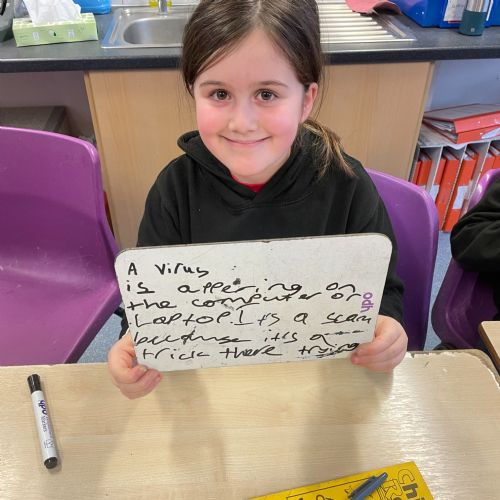 A virus
is affering on
the computer or
Laptop! Its a scam
because it's a
trick there trying
odh
Ch